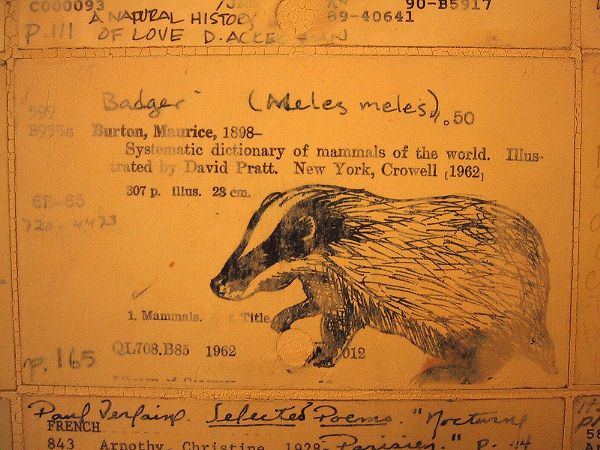 C000093 90-B5917
A NATURAL HISTORY 89-40641
p. 111 OF LOVE D. ACKERMAN
Badger (Meles meles)
599 .50
B955s Burton, Maurice, 1898–
Systematic dictionary of mammals of the world. Illus-
trated by David Pratt. New York, Crowell [1962]
307 p. illus. 28 cm.
68-66
720-4473
1. Mammals. I. Title
QL708.B85 1962 012
p. 165
Paul Verlaine. Selected Poems. "Nocturne
FRENCH
843 Arnothy, Christine, 1928- Parisien." p.